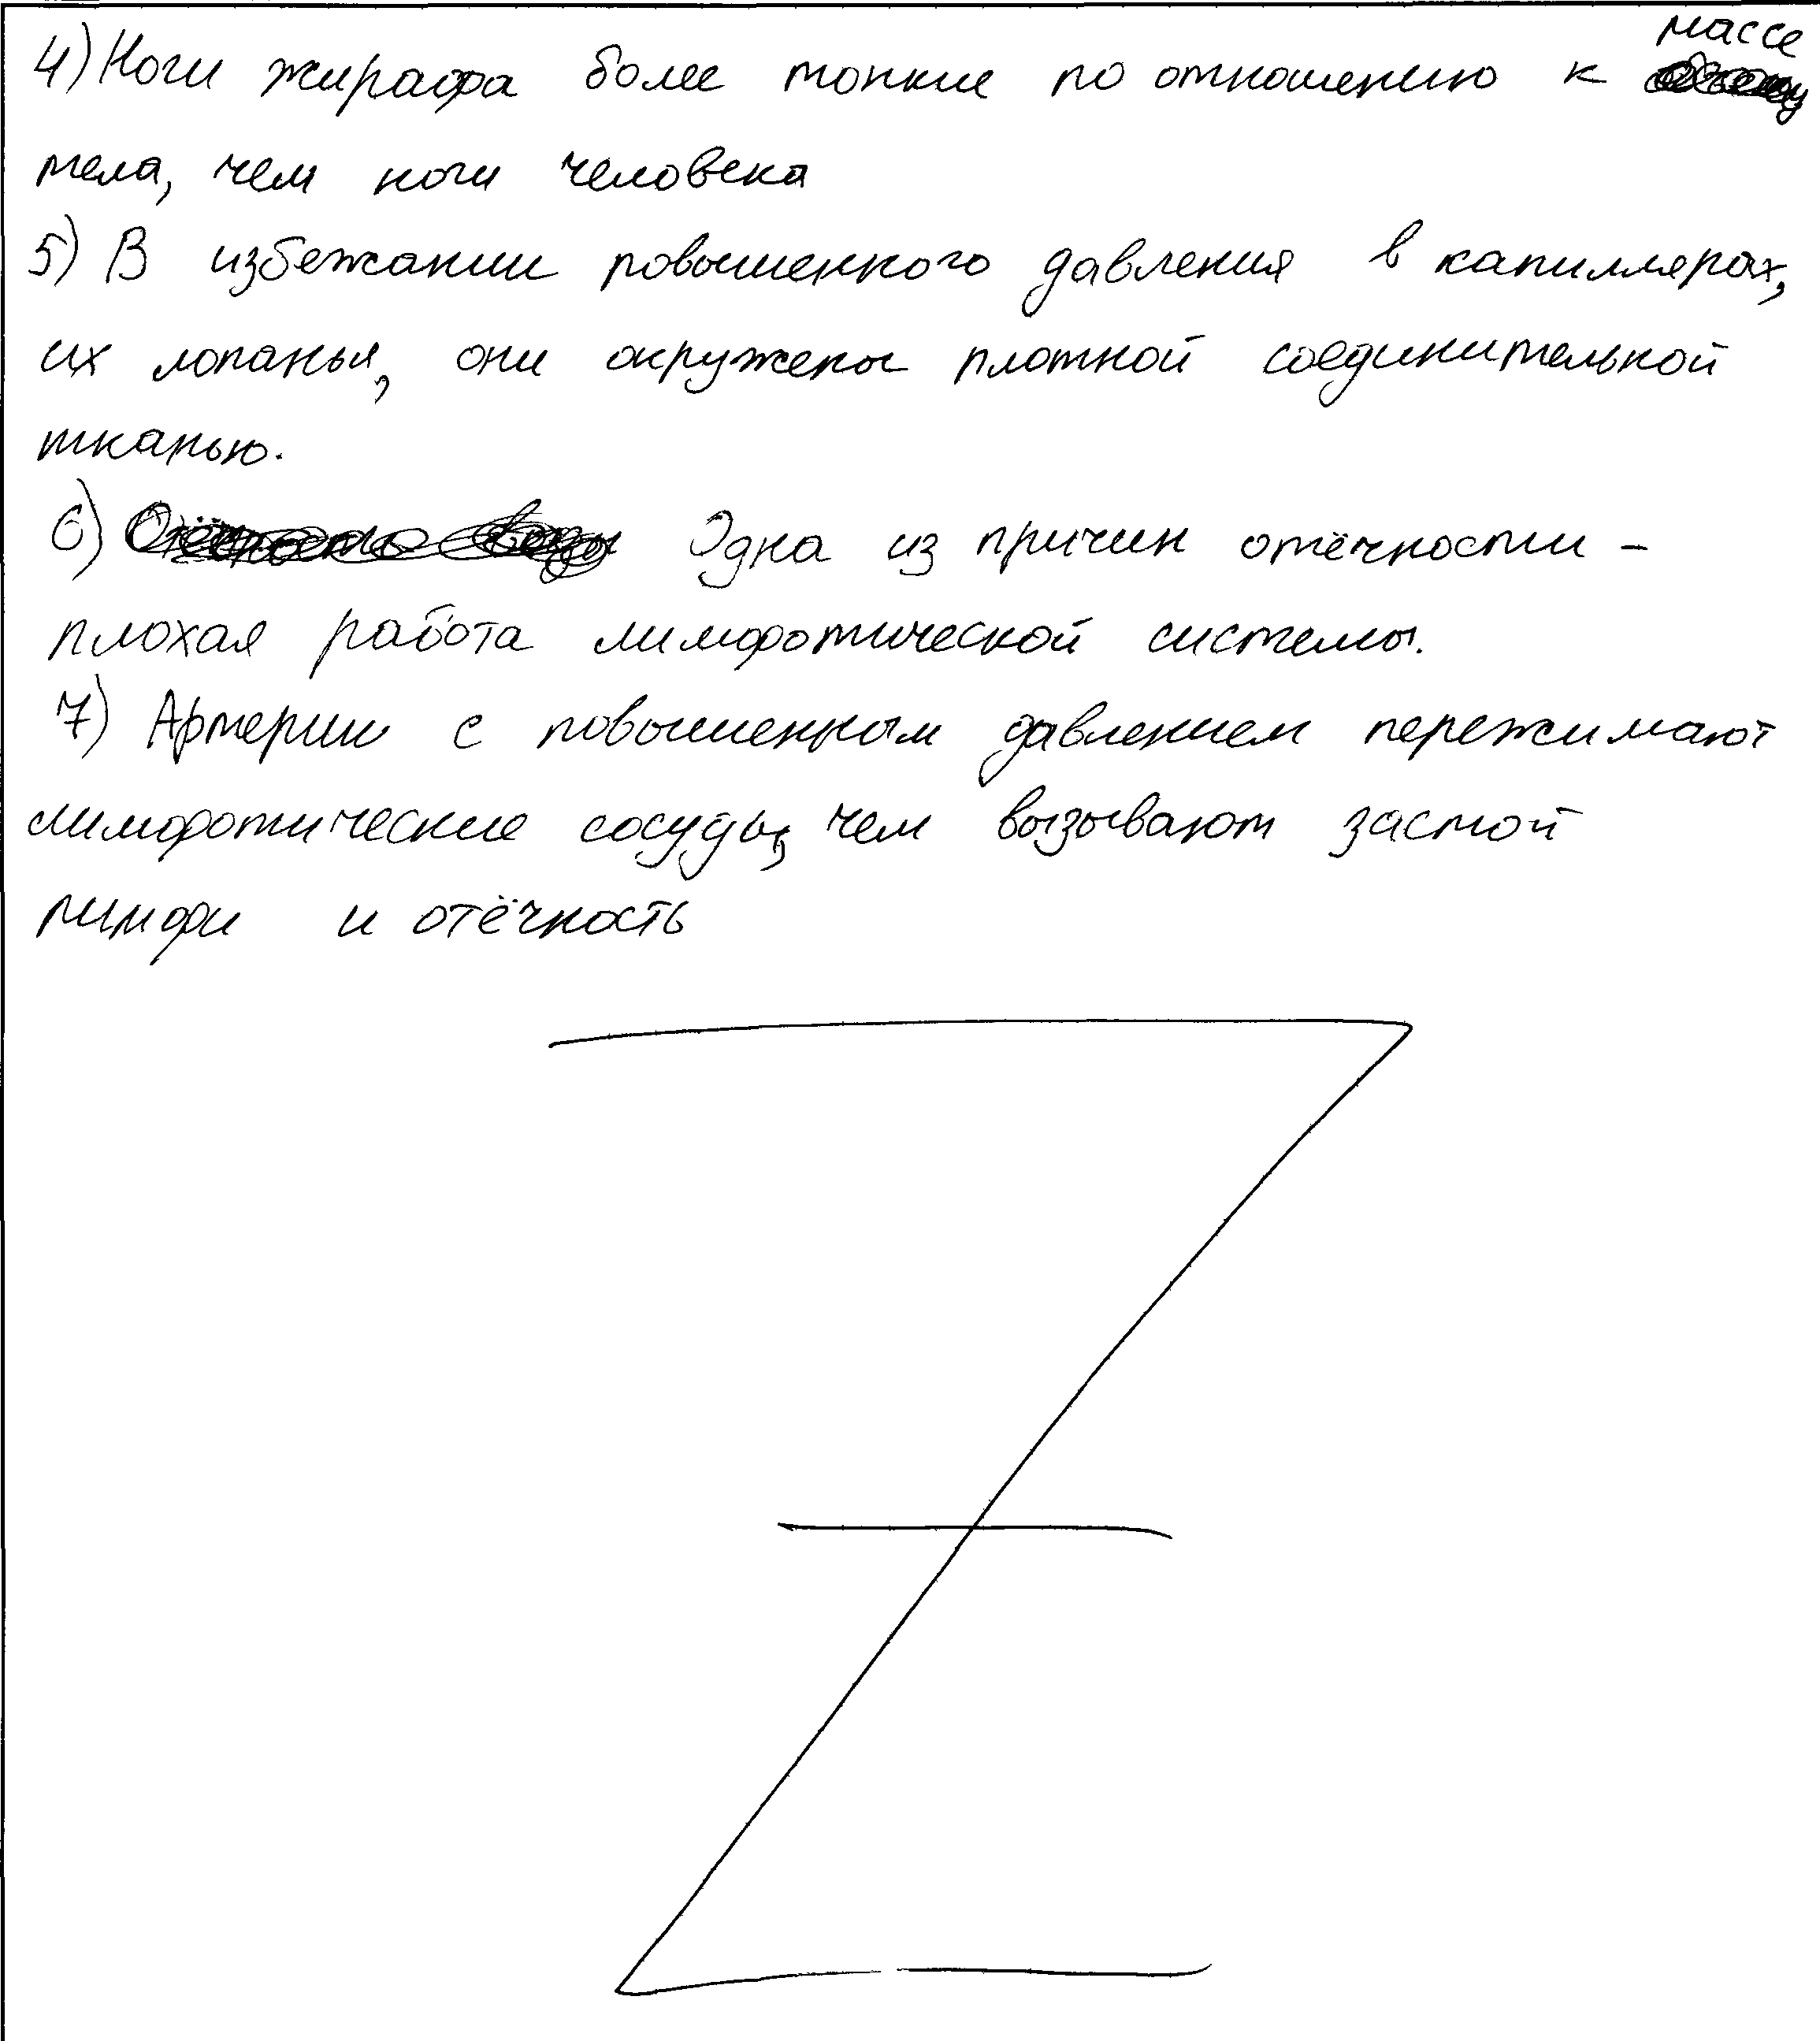 4) Ноги жирафа более тонкие по отношению к массе
тела, чем ноги человека
5) В избежании повышенного давления в капиллярах,
их лопанья, они окружены плотной соединительной
тканью.
6) Одна из причин отёчности -
плохая работа лимфотической системы.
7) Артерии с повышенным давлением пережимают
лимфотические сосуды, чем вызывают застой
лимфи и отёчность